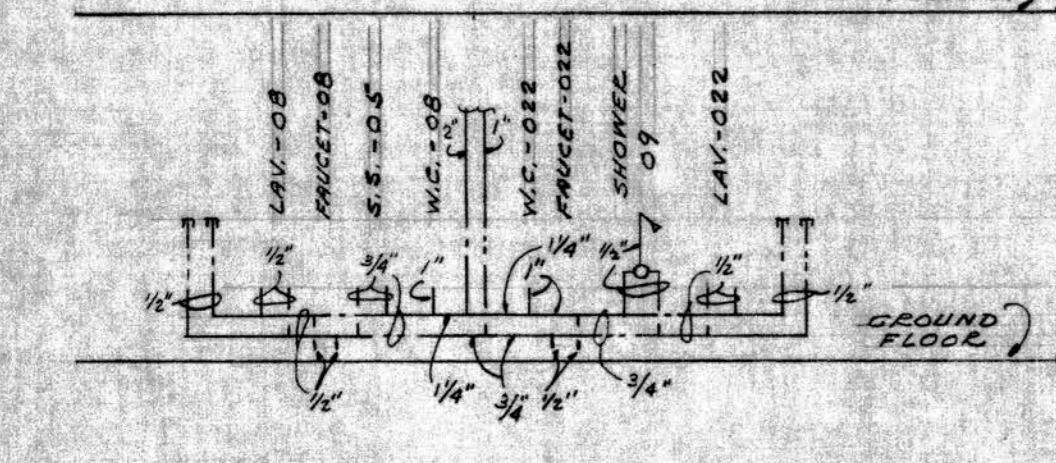 LAV.-08
FAUCET-08
S.S.-05
W.C.-08
2"
1"
W.C.-022
FAUCET-022
SHOWER
09
LAV.-022
1/2"
1/2"
3/4"
1"
1"
1 1/4"
1/2"
1/2"
1/2"
GROUND
FLOOR
1/2"
1 1/4"
3/4"
1/2"
3/4"